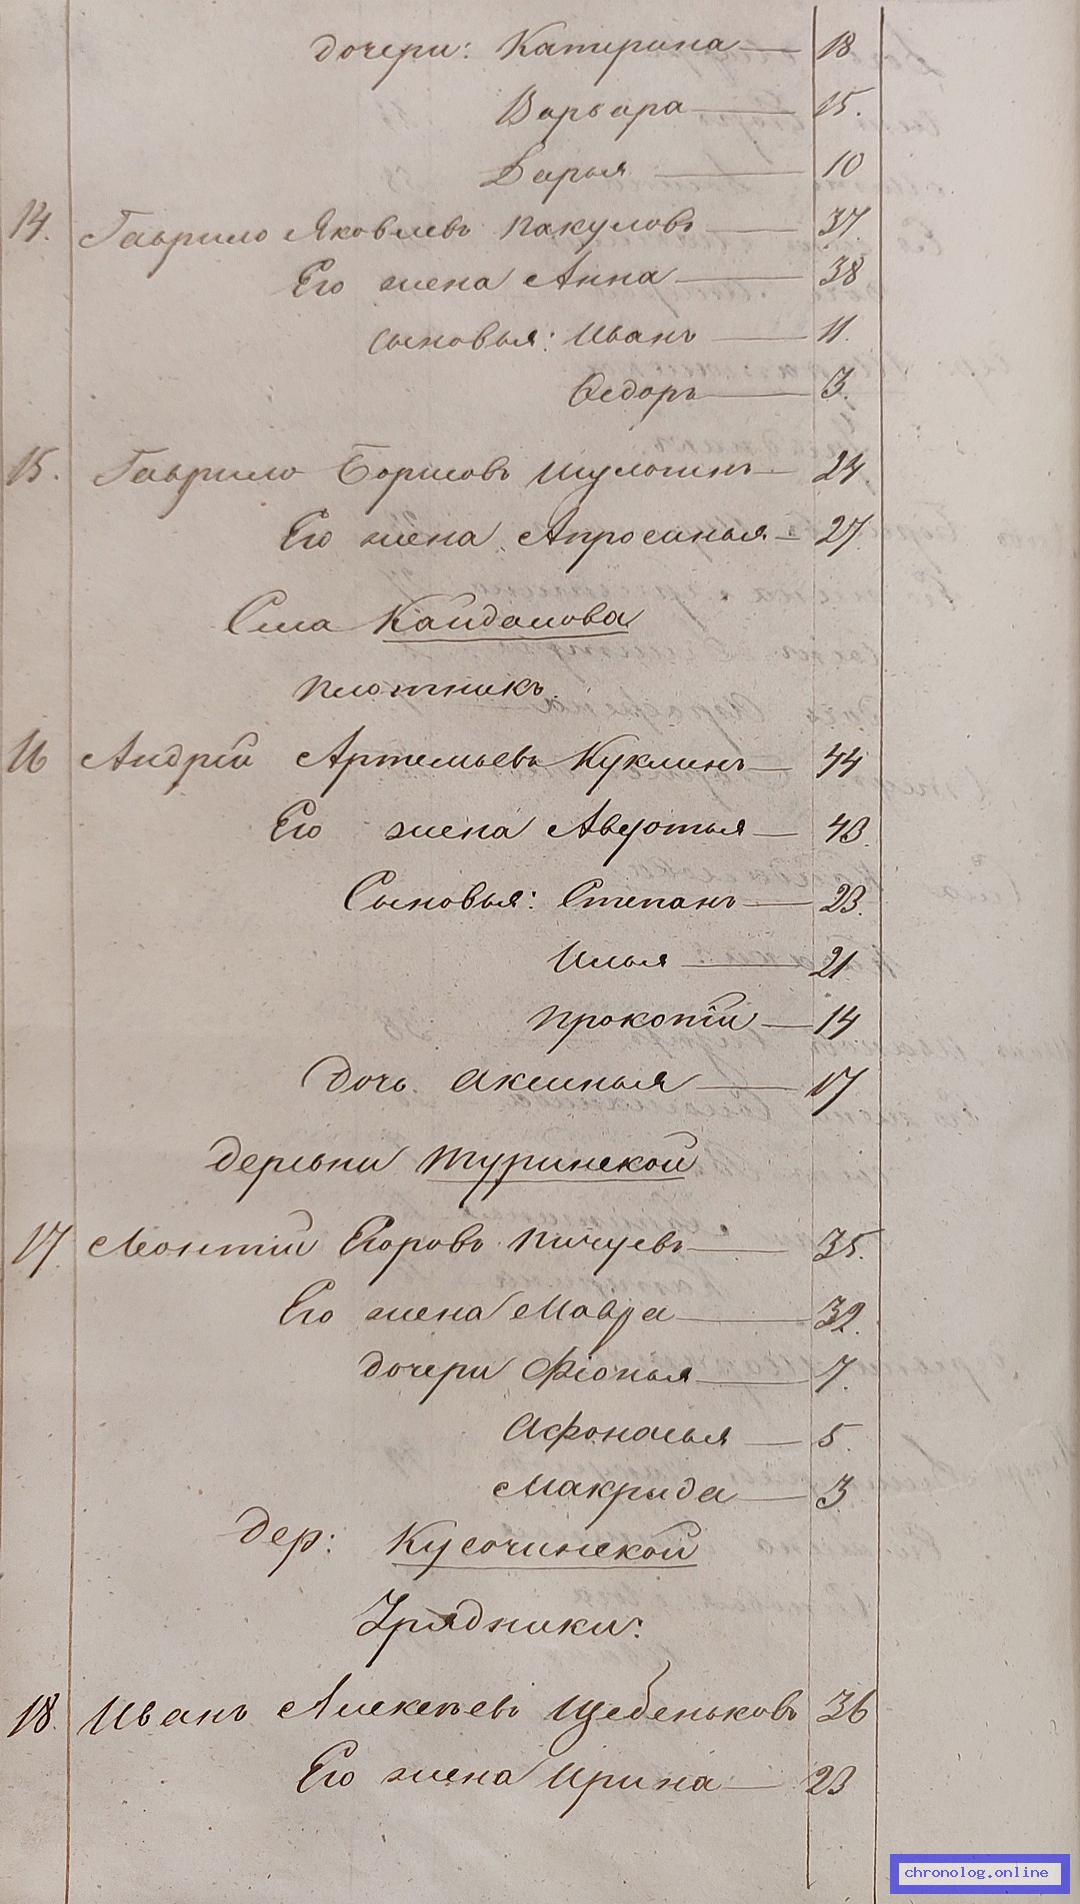 дочери: Катерина — 18
Варвара — 15.
Дарья — 10
14. Гаврило Яковлевъ Пакуловъ — 37.
Его жена Анна — 38
сыновья: Иванъ — 11.
Ѳедоръ — 3.
15. Гаврило Борисовъ Шулгинъ — 24.
Его жена Апросинья — 27.
Села Кайдалова
плотникъ.
16 Андрей Артемьевъ Куклинъ — 44
Его жена Авдотья — 43.
Сыновья: Степанъ — 23.
Илья — 21
Прокопій — 14
Дочь Аксинья — 17
деревни Туринской
17. Леонтій Егоровъ Пичуевъ — 35.
Его жена Мавра — 32.
дочери Фіонья — 7.
Афонасья — 5.
Макрида — 3
дер: Кусочинской
Урядники:
18. Иванъ Алексѣевъ Щебеньковъ 36
Его жена Ирина — 23
chronolog.online